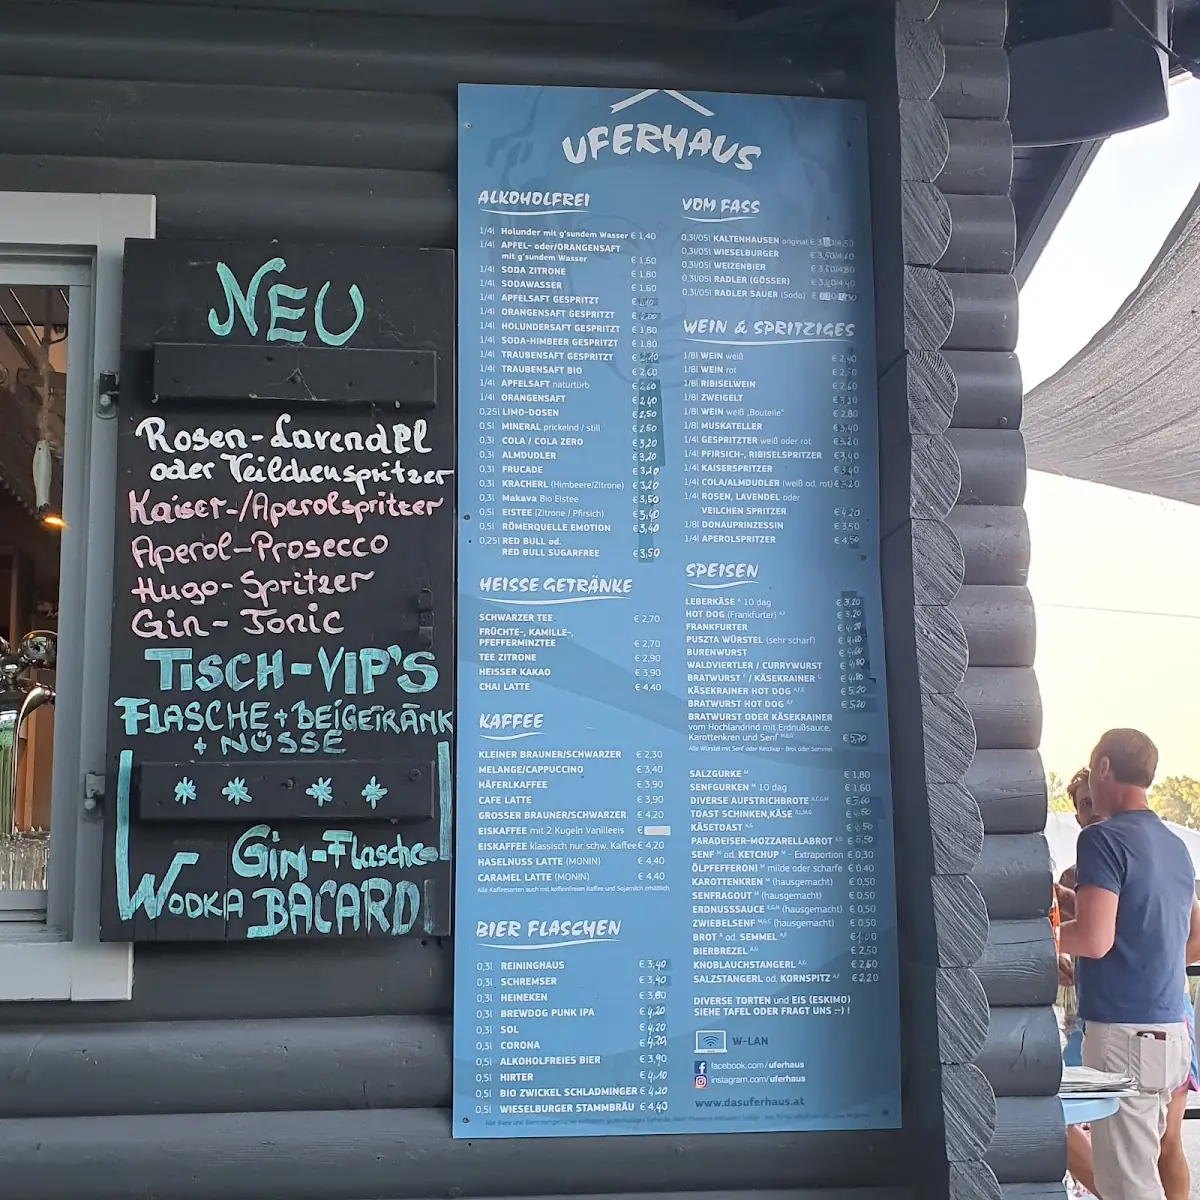 NEU
Rosen-Lavendel
oder Veilchenspritzer
Kaiser-/Aperolspritzer
Aperol-Prosecco
Hugo-Spritzer
Gin-Tonic
TISCH-VIP'S
FLASCHE + BEIGETRÄNK
+ NÜSSE
Gin-Flasche
WODKA BACARDI
UFERHAUS
ALKOHOLFREI
1/4l Holunder mit g'sundem Wasser € 1,40
1/4l APFEL- oder/ORANGENSAFT
mit g'sundem Wasser € 1,50
1/4l SODA ZITRONE € 1,80
1/4l SODAWASSER € 1,60
1/4l APFELSAFT GESPRITZT €
1/4l ORANGENSAFT GESPRITZT €
1/4l HOLUNDERSAFT GESPRITZT € 1,80
1/4l SODA-HIMBEER GESPRITZT € 1,80
1/4l TRAUBENSAFT GESPRITZT € 2,10
1/4l TRAUBENSAFT BIO € 2,60
1/4l APFELSAFT naturtürb € 2,60
1/4l ORANGENSAFT € 2,40
0,25l LIMO-DOSEN € 2,50
0,5l MINERAL prickelnd / still € 2,50
0,3l COLA / COLA ZERO € 3,20
0,3l ALMDUDLER € 3,20
0,3l FRUCADE € 3,20
0,3l KRACHERL (Himbeere/Zitrone) € 3,20
0,3l Makava Bio Eistee € 3,50
0,5l EISTEE (Zitrone / Pfirsich) € 3,40
0,5l RÖMERQUELLE EMOTION € 3,40
0,25l RED BULL od.
RED BULL SUGARFREE € 3,50
HEISSE GETRÄNKE
SCHWARZER TEE € 2,70
FRÜCHTE-, KAMILLE-,
PFEFFERMINZTEE € 2,70
TEE ZITRONE € 2,90
HEISSER KAKAO € 3,90
CHAI LATTE € 4,40
KAFFEE
KLEINER BRAUNER/SCHWARZER € 2,30
MELANGE/CAPPUCCINO € 3,40
HÄFERLKAFFEE € 3,90
CAFE LATTE € 3,90
GROSSER BRAUNER/SCHWARZER € 4,20
EISKAFFEE mit 2 Kugeln Vanilleeis €
EISKAFFEE klassisch nur schw. Kaffee € 4,20
HASELNUSS LATTE (MONIN) € 4,40
CARAMEL LATTE (MONIN) € 4,40
Alle Kaffeesorten auch mit koffeinfreien Kaffee und Sojamilch erhältlich.
BIER FLASCHEN
0,3l REININGHAUS € 3,40
0,3l SCHREMSER € 3,40
0,3l HEINEKEN € 3,80
0,3l BREWDOG PUNK IPA € 4,20
0,3l SOL € 4,20
0,3l CORONA € 4,20
0,5l ALKOHOLFREIES BIER € 3,90
0,5l HIRTER € 4,10
0,5l BIO ZWICKEL SCHLADMINGER € 4,20
0,5l WIESELBURGER STAMMBRÄU € 4,40
VOM FASS
0,3l/05l KALTENHAUSEN original €
0,3l/05l WIESELBURGER € 3,50/4,60
0,3l/05l WEIZENBIER € 3,60/4,80
0,3l/05l RADLER (GÖSSER) € 3,40/4,40
0,3l/05l RADLER SAUER (Soda) €
WEIN & SPRITZIGES
1/8l WEIN weiß € 2,40
1/8l WEIN rot €
1/8l RIBISELWEIN € 2,60
1/8l ZWEIGELT € 3,20
1/8l WEIN weiß „Bouteile" € 2,80
1/8l MUSKATELLER € 3,40
1/4l GESPRITZTER weiß oder rot € 3,20
1/4l PFIRSICH-, RIBISELSPRITZER € 3,40
1/4l KAISERSPRITZER € 3,40
1/4l COLA/ALMDUDLER (weiß od. rot) € 3,20
1/4l ROSEN, LAVENDEL oder
VEILCHEN SPRITZER € 4,20
1/8l DONAUPRINZESSIN € 3,50
1/4l APEROLSPRITZER € 4,50
SPEISEN
LEBERKÄSE 10 dag € 3,20
HOT DOG (Frankfurter) € 3,20
FRANKFURTER € 4,20
PUSZTA WÜRSTEL (sehr scharf) €
BURENWURST €
WALDVIERTLER / CURRYWURST €
BRATWURST / KÄSEKRAINER € 4,80
KÄSEKRAINER HOT DOG € 5,20
BRATWURST HOT DOG € 5,20
BRATWURST ODER KÄSEKRAINER
vom Hochlandrind mit Erdnußsauce,
Karottenkren und Senf € 5,70
Alle Würstel mit Senf oder Ketchup - Brot oder Semmel
SALZGURKE € 1,80
SENFGURKEN 10 dag € 1,60
DIVERSE AUFSTRICHBROTE € 3,60
TOAST SCHINKEN,KÄSE € 4,50
KÄSETOAST € 4,50
PARADEISER-MOZZARELLABROT € 5,50
SENF od. KETCHUP - Extraportion € 0,30
ÖLPFEFFERONI milde oder scharfe € 0,40
KAROTTENKREN (hausgemacht) € 0,50
SENFRAGOUT (hausgemacht) € 0,50
ERDNUSSSAUCE (hausgemacht) € 0,50
ZWIEBELSENF (hausgemacht) € 0,50
BROT od. SEMMEL € 1,00
BIERBREZEL € 2,50
KNOBLAUCHSTANGERL € 2,60
SALZSTANGERL od. KORNSPITZ € 2,20
DIVERSE TORTEN und EIS (ESKIMO)
SIEHE TAFEL ODER FRAGT UNS :-) !
W-LAN
facebook.com/uferhaus
instagram.com/uferhaus
www.dasuferhaus.at